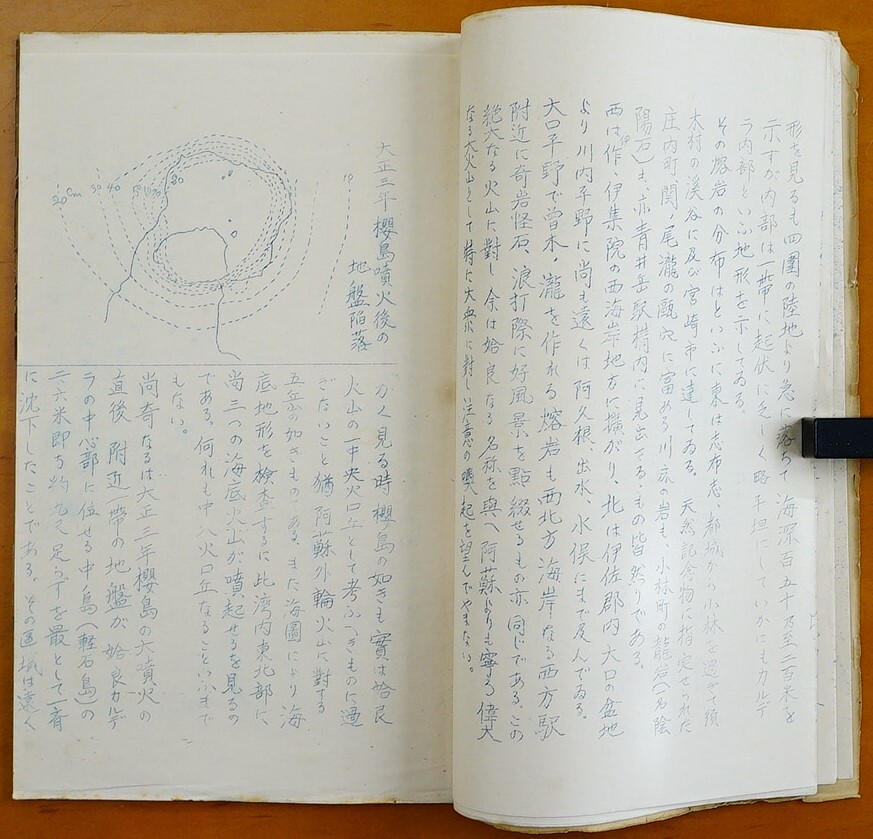 形を見るも四圍の陸地より急に落ちて海深百五十乃至二百米を
示すが内部は一帯に起伏に乏しく略平坦にしていかにもカルデ
ラ内部といふ地形を示してゐる。
その熔岩の分布はといふに東は志布志、都城から小林を過ぎて須
木村の溪谷に及び宮崎市に達してゐる。天然記念物に指定せられた
庄内町関ノ尾瀧の甌穴に富める川床の岩も、小林町の龍岩(名陰
陽石)も、亦青井岳駅構内に見出さるゝもの皆然りである。
西は伊作、伊集院の西海岸地方に擴がり、北は伊佐郡内大口の盆地
より川内平野に尚も遠くは阿久根、出水、水俣にまで及んでゐる。
大口平野で曽木ノ瀧を作れる熔岩も西北方海岸なる西方駅
附近に奇岩怪石、浪打際に好風景を點綴せるもの亦同じである。この
絶大なる火山に對し余は姶良なる名称を與へ阿蘇よりも寧ろ偉大
なる大火山として特に大血に對し注意の喚起を望んでやまない。
大正三年櫻島噴火後の
地盤陥落
10
20cm
30
40
50
かく見る時櫻島の如きも實は姶良
火山の一中央火口丘として考ふべきものに過
ぎないこと猶阿蘇外輪火山に對する
五岳の如きものである。また海圖により海
底地形を檢査するに此湾内東北部に
尚三つの海底火山が噴起せるを見るの
である。何れも中央火口丘なることいふまで
もない。
尚奇なるは大正三年櫻島の大噴火の
直後附近一帯の地盤が姶良カルデ
ラの中心部に位せる中ノ島(軽石島)の
二.六米即ち約九尺足らずを最として一斉
に沈下したことである。その區域は遠く